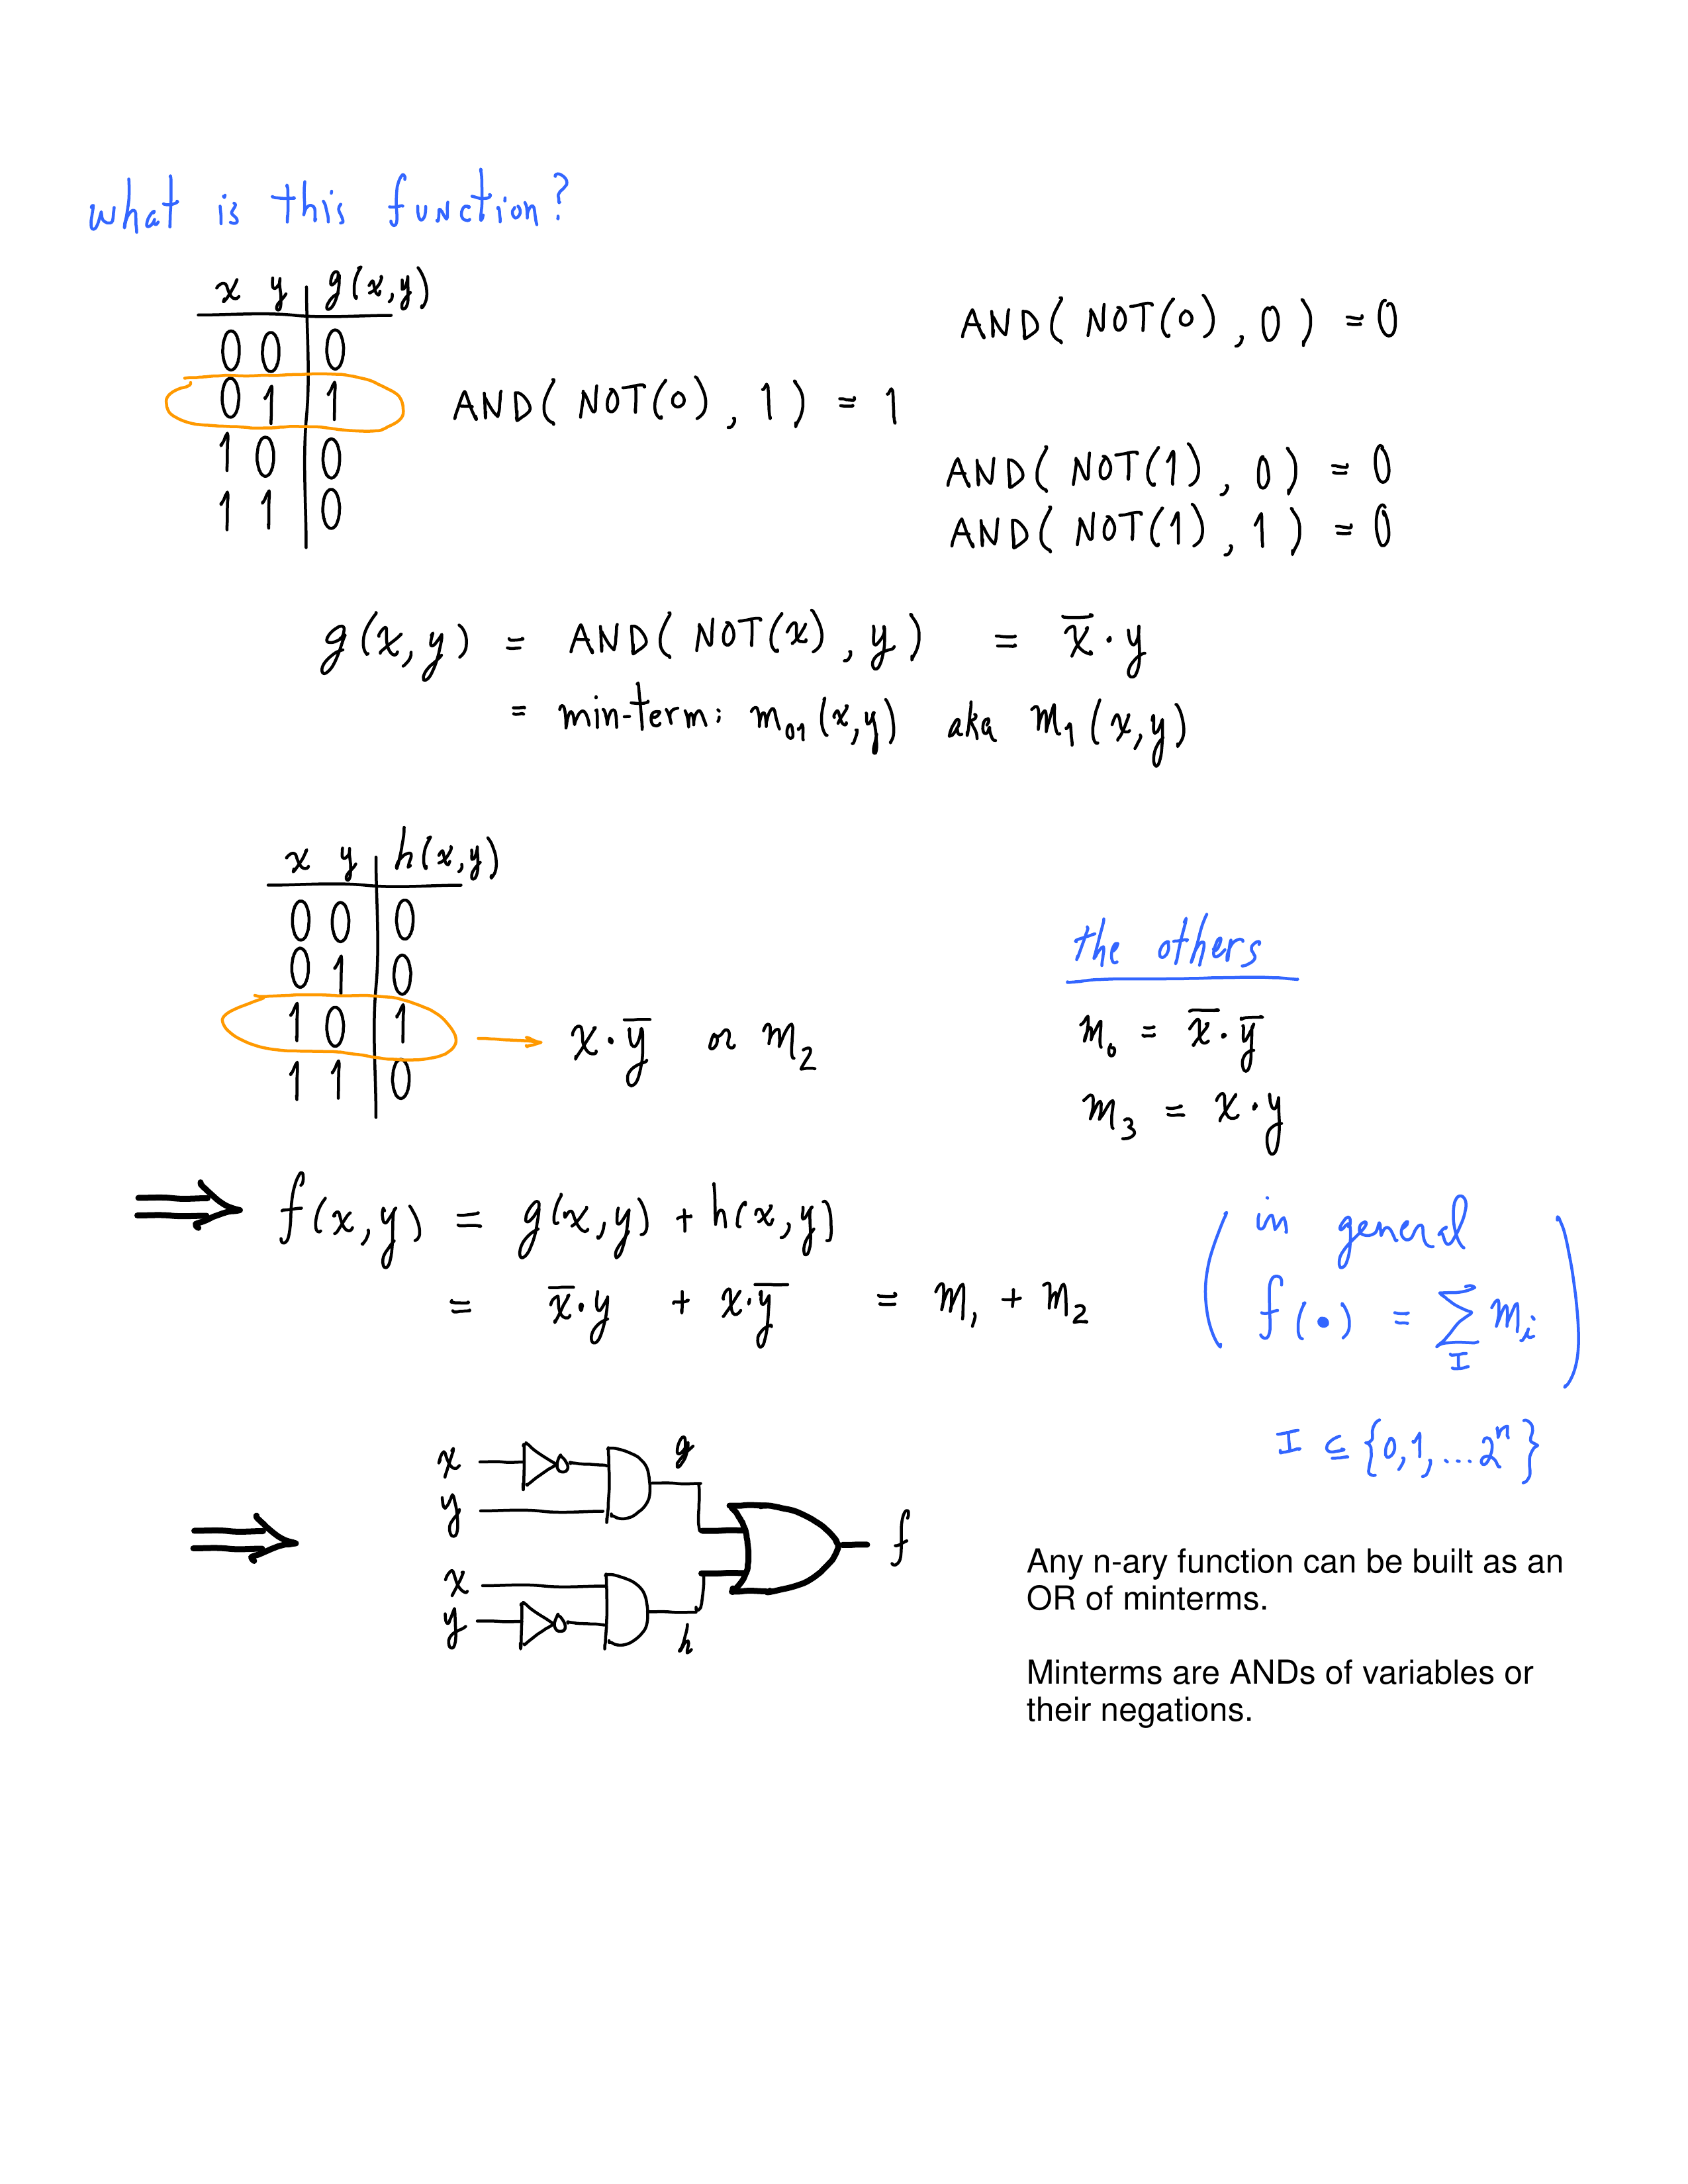 what is this function?
x y g(x,y)
0 0 0
AND( NOT(0) , 0 ) = 0
0 1 1
AND( NOT(0) , 1 ) = 1
1 0 0
AND( NOT(1) , 0 ) = 0
1 1 0
AND( NOT(1) , 1 ) = 0
g(x,y) = AND( NOT(x) , y ) = x̅·y
= min-term: m₀₁(x,y) aka m₁(x,y)
x y h(x,y)
0 0 0
0 1 0
1 0 1 → x·y̅ or m₂
1 1 0
the others
m₀ = x̅·y̅
m₃ = x·y
⇒ f(x,y) = g(x,y) + h(x,y)
= x̅·y + x·y̅ = m₁ + m₂
( in general
f(•) = ∑ mᵢ )
I
I ⊆ {0,1,...2ⁿ}
⇒
x
y
g
x
y
h
f
Any n-ary function can be built as an
OR of minterms.
Minterms are ANDs of variables or
their negations.